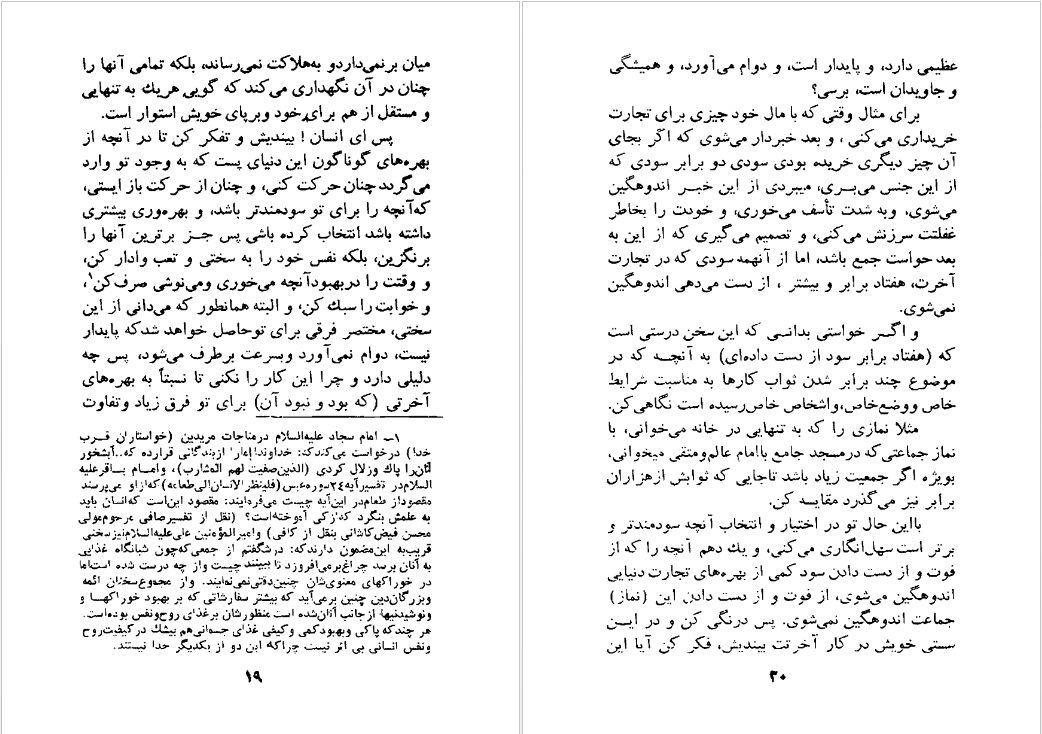 میان برنمی‌داردو به‌هلاکت نمی‌رساند، بلکه تمامی آنها را
چنان در آن نگهداری می‌کند که گویی هریك به تنهایی
و مستقل از هم برای‌خود وبرپای خویش استوار است.
پس ای انسان! بیندیش و تفکر کن تا در آنچه از
بهره‌های گوناگون این دنیای پست که به وجود تو وارد
می‌گردد چنان حرکت کنی، و چنان از حرکت باز ایستی،
که‌آنچه را برای تو سودمندتر باشد، و بهره‌وری بیشتری
داشته باشد انتخاب کرده باشی پس جـز برترین آنها را
برنگزین، بلکه نفس خود را به سختی و تعب وادار کن،
و وقتت را دربهبودآنچه می‌خوری ومی‌نوشی صرف‌کن۱،
و خوابت را سبك کن، و البته همانطور که می‌دانی از این
سختی، مختصر فرقی برای توحاصل خواهد شدکه پایدار
نیست، دوام نمی‌آورد وبسرعت برطرف می‌شود، پس چه
دلیلی دارد و چرا این کار را نکنی تا نسبتاً به بهره‌های
آخرتی (که بود و نبود آن) برای تو فرق زیاد وتفاوت
۱ــ امام سجاد علیه‌السلام درمناجات مریدین (خواستاران قـرب
خدا) درخواست می‌کندکه: خداوندا! مارا ازبندگانی قرارده که..آبشخور
آنان‌را پاك وزلال کردی (الذین‌صفیت لهم المشارب)، وامـام بـاقرعلیه
السلام‌در تفسیرآیه۲۴سوره‌عبس(فلینظرالانسان‌الی‌طعامه)که‌ازاو می‌پرسند
مقصوداز طعام‌در این‌آیه چیست می‌فرمایند: مقصود این‌است که‌انسان باید
به علمش بنگرد که‌ازکی آموخته‌است؟ (نقل از تفسیرصافی مرحوم‌مولی
محسن فیض‌کاشانی بنقل از کافی) وامیرالمؤمنین علی‌علیه‌السلام‌نیزسخنی
قریب‌به این‌مضمون دارندکه: درشگفتم از جمعی‌که‌چون شبانگاه غذایی
به آنان برسد چراغ‌برمی‌افروزد تا ببینند چیست واز چه درست شده است‌اما
در خوراکهای معنوی‌شان چنین‌دقتی‌نمی‌نمایند. واز مجموع‌سخنان ائمه
وبزرگان‌دین چنین برمی‌آید که بیشتر سفارشاتی که بر بهبود خوراکهـا و
ونوشیدنیها ازجانب آنان‌شده است منظورشان برغذای روح‌ونفس بوده‌است.
هر چندکه پاکی وبهبودکمی وکیفی غذای جسمانی‌هم بیشك درکیفیت‌روح
ونفس انسانی بی اثر نیست چراکه این دو از یکدیگر جدا نیستند.
۱۹
عظیمی دارد، و پایدار است، و دوام می‌آورد، و همیشگی
و جاویدان است، برسی؟
برای مثال وقتی که با مال خود چیزی برای تجارت
خریداری می‌کنی ، و بعد خبردار می‌شوی که اگر بجای
آن چیز دیگری خریده بودی سودی دو برابر سودی که
از این جنس می‌بـری، میبردی از این خبـر اندوهگین
می‌شوی، وبه شدت تأسف می‌خوری، و خودت را بخاطر
غفلتت سرزنش می‌کنی، و تصمیم می‌گیری که از این به
بعد حواست جمع باشد، اما از آنهمه سودی که در تجارت
آخرت، هفتاد برابر و بیشتر ، از دست می‌دهی اندوهگین
نمی‌شوی.
و اگـر خواستی بدانـی که این سخن درستی است
که (هفتاد برابر سود از دست داده‌ای) به آنچـه که در
موضوع چند برابر شدن ثواب کارها به مناسبت شرایط
خاص ووضع‌خاص،واشخاص خاص‌رسیده است نگاهی‌کن.
مثلا نمازی را که به تنهایی در خانه می‌خوانی، با
نماز جماعتی‌که درمسجد جامع باامام عالم‌ومتقی میخوانی،
بویژه اگر جمعیت زیاد باشد تاجایی که ثوابش ازهزاران
برابر نیز می‌گذرد مقایسه کن.
بااین حال تو در اختیار و انتخاب آنچه سودمندتر و
برتر است سهل‌انگاری می‌کنی، و یك دهم آنچه را که از
فوت و از دست دادن سود کمی از بهره‌های تجارت دنیایی
اندوهگین می‌شوی، از فوت و از دست دادن این (نماز)
جماعت اندوهگین نمی‌شوی. پس درنگی کن و در ایـن
سستی خویش در کار آخرتت بیندیش، فکر کن آیا این
۲۰